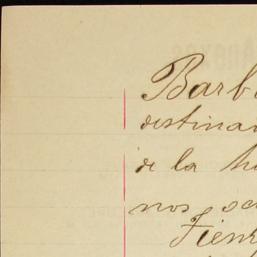 Barb
destina
de la h
nos, oc
Tien